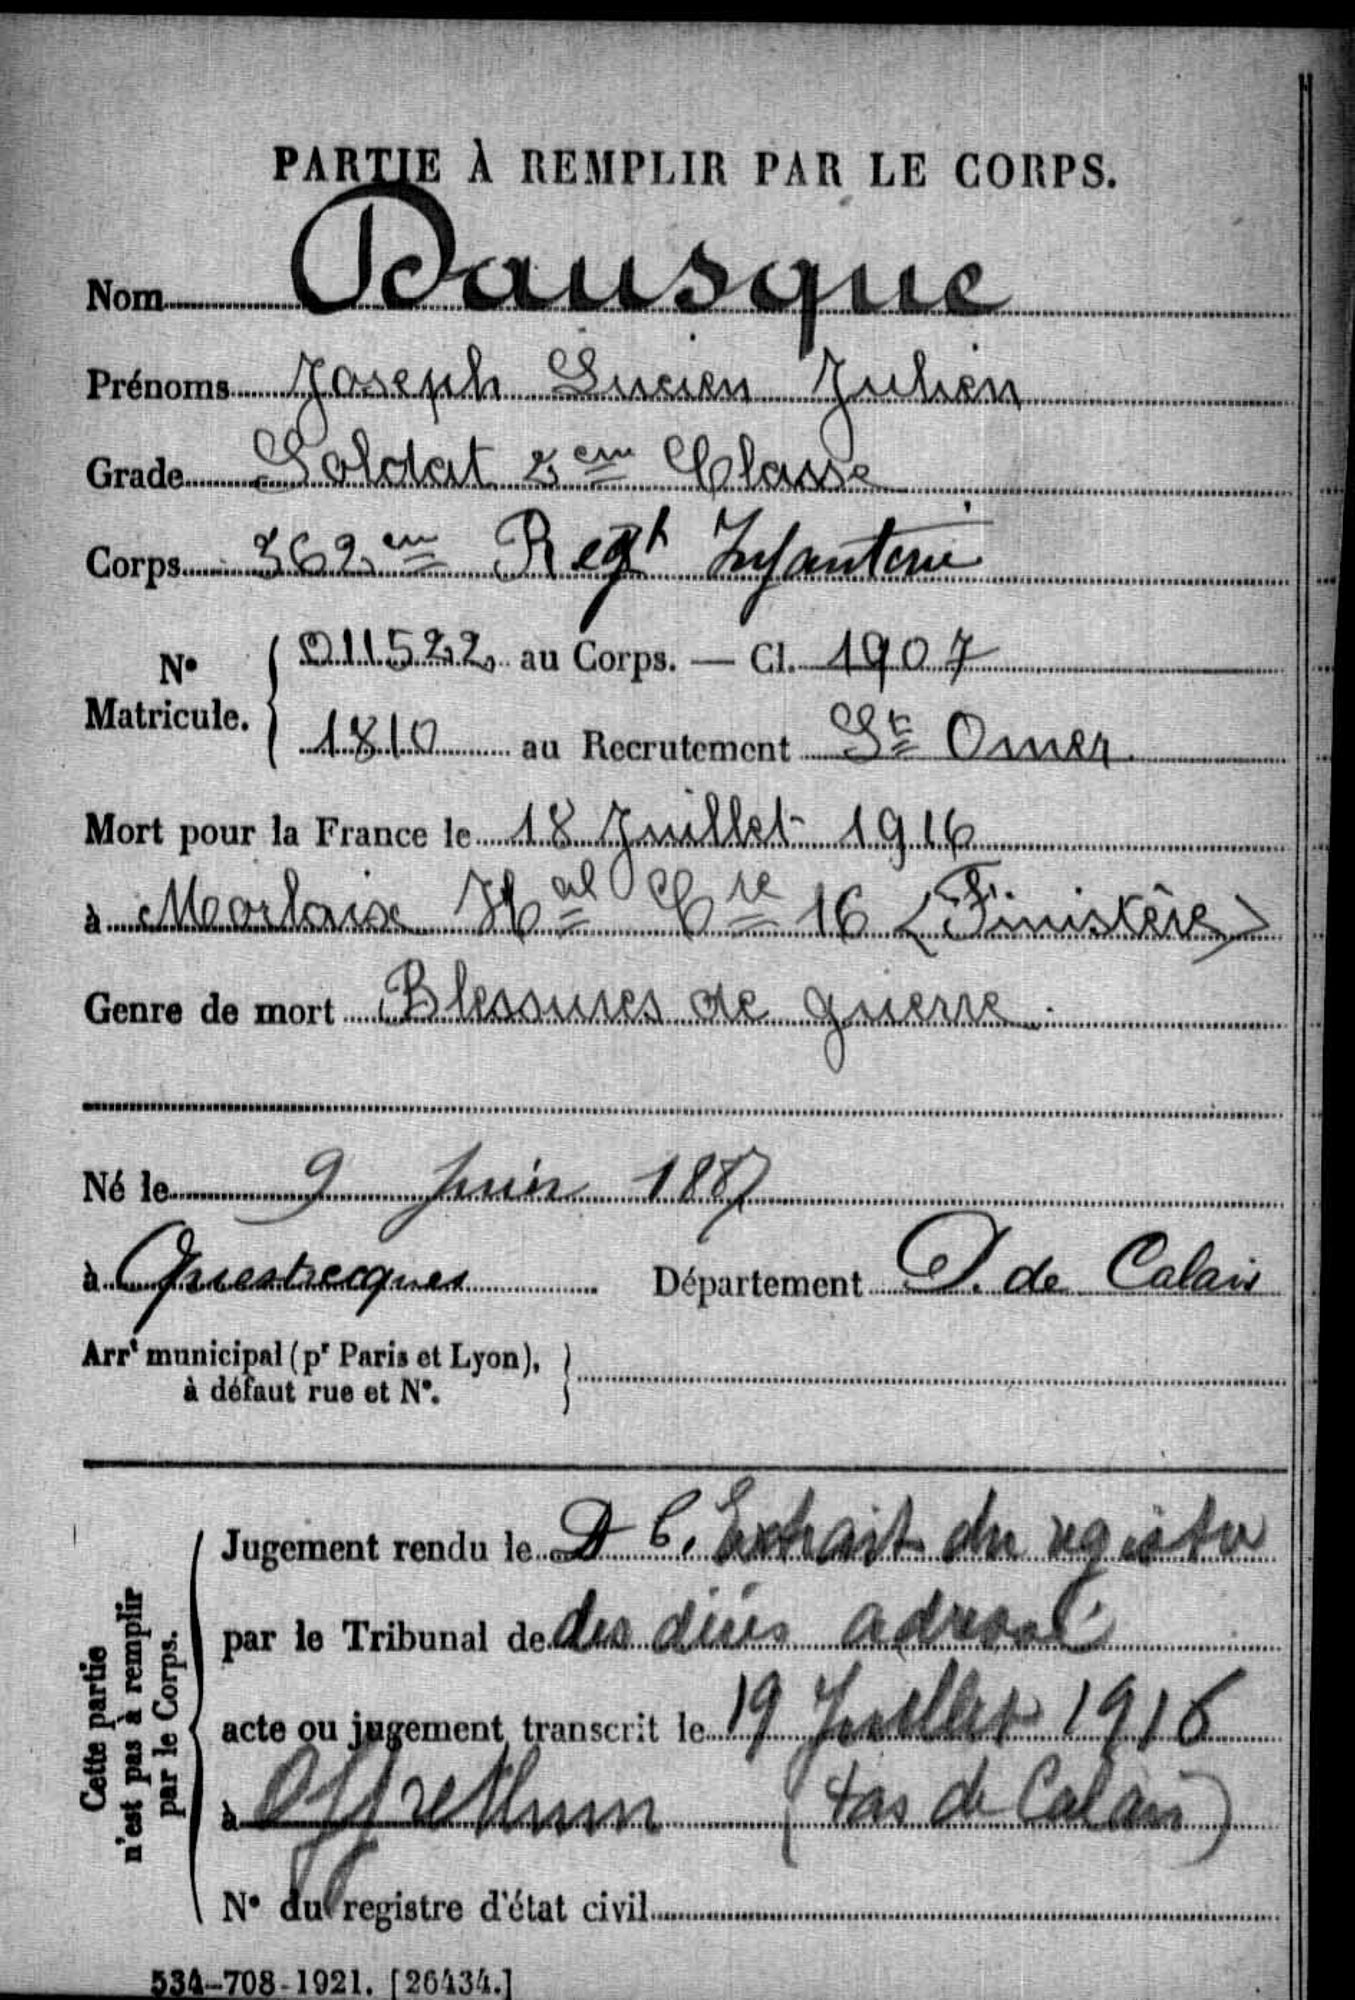 PARTIE À REMPLIR PAR LE CORPS.
Nom Dausque
Prénoms Joseph Lucien Julien
Grade Soldat 2em Classe
Corps 362em Regt Infanterie
No Matricule. { 011522 au Corps. — Cl. 1907
1810 au Recrutement St Omer
Mort pour la France le 18 Juillet 1916
à Morlaix Hal Cre 16 (Finistère)
Genre de mort Blessures de guerre.
Né le 9 Juin 1887
à Questrecques Département P. de Calais
Arrt municipal (pr Paris et Lyon), }
à défaut rue et No.
Cette partie
n'est pas à remplir
par le Corps.
Jugement rendu le D C. Extrait du registre
par le Tribunal de des décès adressé
acte ou jugement transcrit le 19 Juillet 1916
à Offrethun (Pas de Calais)
No du registre d'état civil
534-708-1921. [26434.]